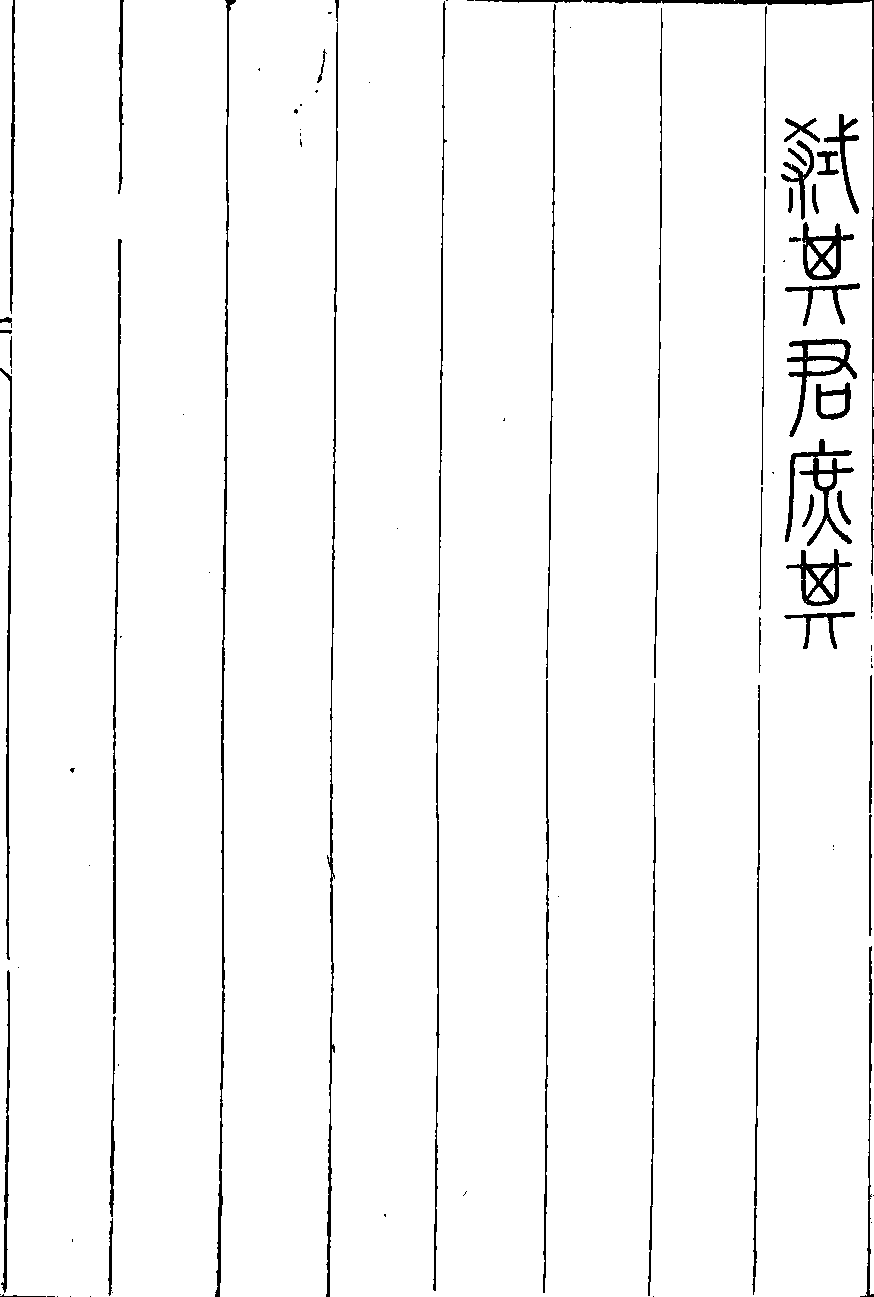 弑其君庶其